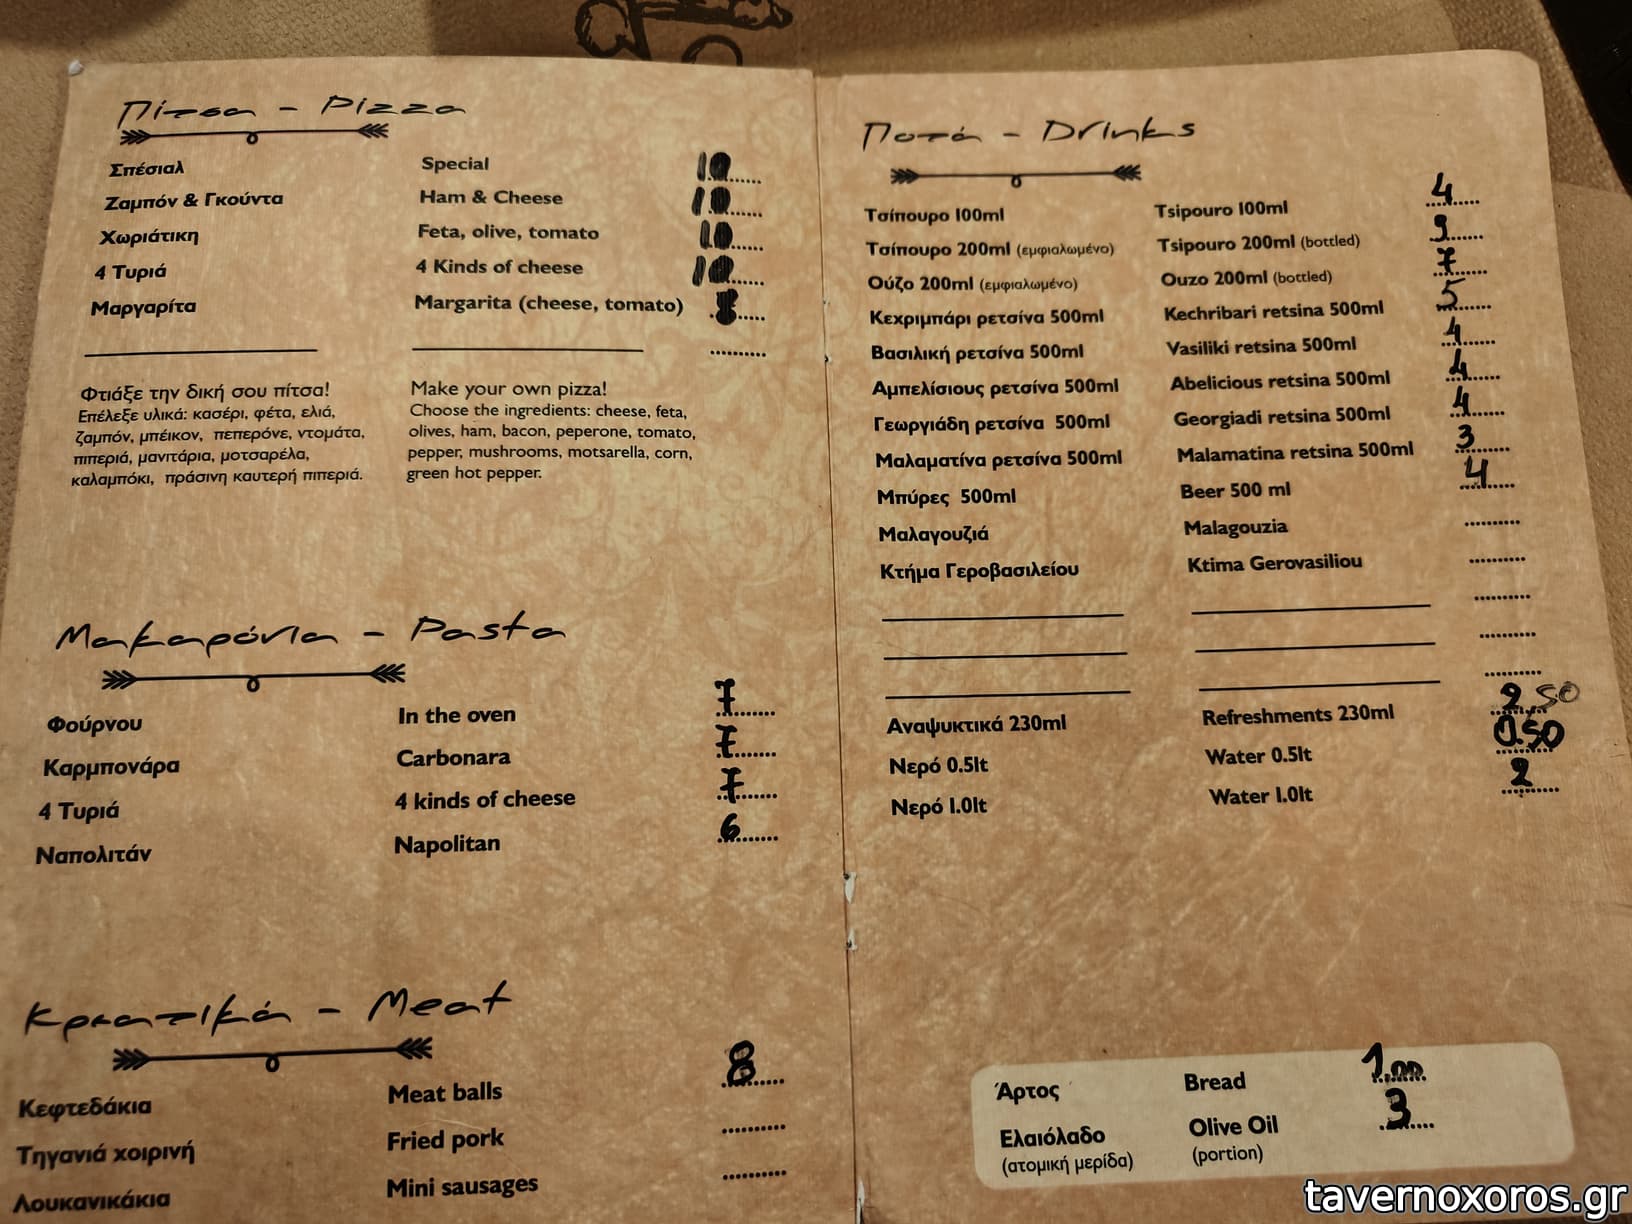 Πίτσα - Pizza
Σπέσιαλ Special 10
Ζαμπόν & Γκούντα Ham & Cheese 10
Χωριάτικη Feta, olive, tomato 10
4 Τυριά 4 Kinds of cheese 10
Μαργαρίτα Margarita (cheese, tomato) 8
Φτιάξε την δική σου πίτσα!
Επέλεξε υλικά: κασέρι, φέτα, ελιά,
ζαμπόν, μπέικον, πεπερόνε, ντομάτα,
πιπεριά, μανιτάρια, μοτσαρέλα,
καλαμπόκι, πράσινη καυτερή πιπεριά.
Make your own pizza!
Choose the ingredients: cheese, feta,
olives, ham, bacon, peperone, tomato,
pepper, mushrooms, motsarella, corn,
green hot pepper.
Μακαρόνια - Pasta
Φούρνου In the oven 7
Καρμπονάρα Carbonara 7
4 Τυριά 4 kinds of cheese 7
Ναπολιτάν Napolitan 6
Κρεατικά - Meat
Κεφτεδάκια Meat balls 8
Τηγανιά χοιρινή Fried pork
Λουκανικάκια Mini sausages
Ποτά - Drinks
Τσίπουρο 100ml Tsipouro 100ml 4
Τσίπουρο 200ml (εμφιαλωμένο) Tsipouro 200ml (bottled) 9
Ούζο 200ml (εμφιαλωμένο) Ouzo 200ml (bottled) 7
Κεχριμπάρι ρετσίνα 500ml Kechribari retsina 500ml 5
Βασιλική ρετσίνα 500ml Vasiliki retsina 500ml 4
Αμπελίσιους ρετσίνα 500ml Abelicious retsina 500ml 4
Γεωργιάδη ρετσίνα 500ml Georgiadi retsina 500ml 4
Μαλαματίνα ρετσίνα 500ml Malamatina retsina 500ml 3
Μπύρες 500ml Beer 500 ml 4
Μαλαγουζιά Malagouzia
Κτήμα Γεροβασιλείου Ktima Gerovasiliou
Αναψυκτικά 230ml Refreshments 230ml 2,50
Νερό 0.5lt Water 0.5lt 0.50
Νερό 1.0lt Water 1.0lt 2
Άρτος Bread 1,00
Ελαιόλαδο Olive Oil 3
(ατομική μερίδα) (portion)
tavernoxoros.gr